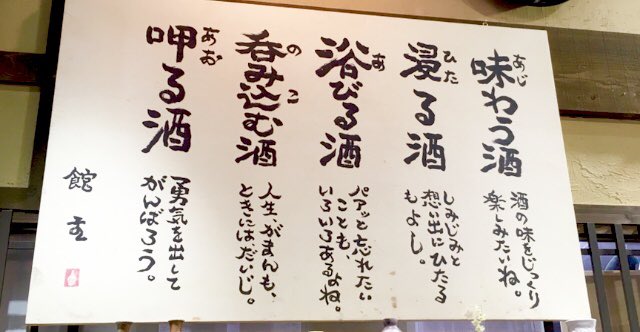 味わう酒
あじ
酒の味をじっくり
楽しみたいね。
浸る酒
ひた
しみじみと
想い出にひたる
もよし。
浴びる酒
あ
パアッと忘れたい
ことも、
いろいろあるよね。
呑み込む酒
の こ
人生、がまんも、
ときにはだいじ。
呷る酒
あお
勇気を出して
がんばろう。
館主